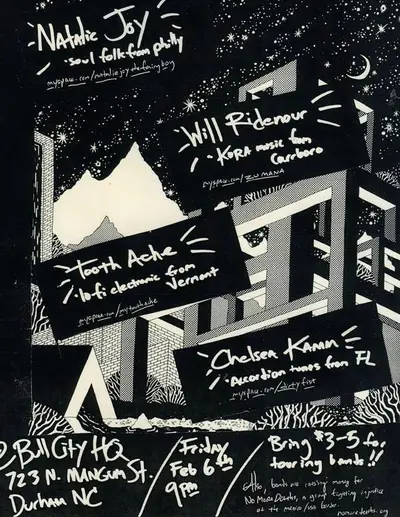 Natalie Joy
soul folk from philly
Will Ridenour
KORA music from
Carrboro
myspace.com/ZUMANA
Tooth Ache
lo-fi electronic from
Vermont
myspace.com/mytoothache
Chelsea Kamm
Accordion tunes from FL
myspace.com/dirtyfist
@ Bull City HQ
723 N. Mangum St.
Durham NC
Friday
Feb 6th
9pm
Bring $3-5 for
touring bands!!
bands are raising money for
No More Deaths, a group fighting injustice
at the mexico/usa border.
nomoredeaths.org